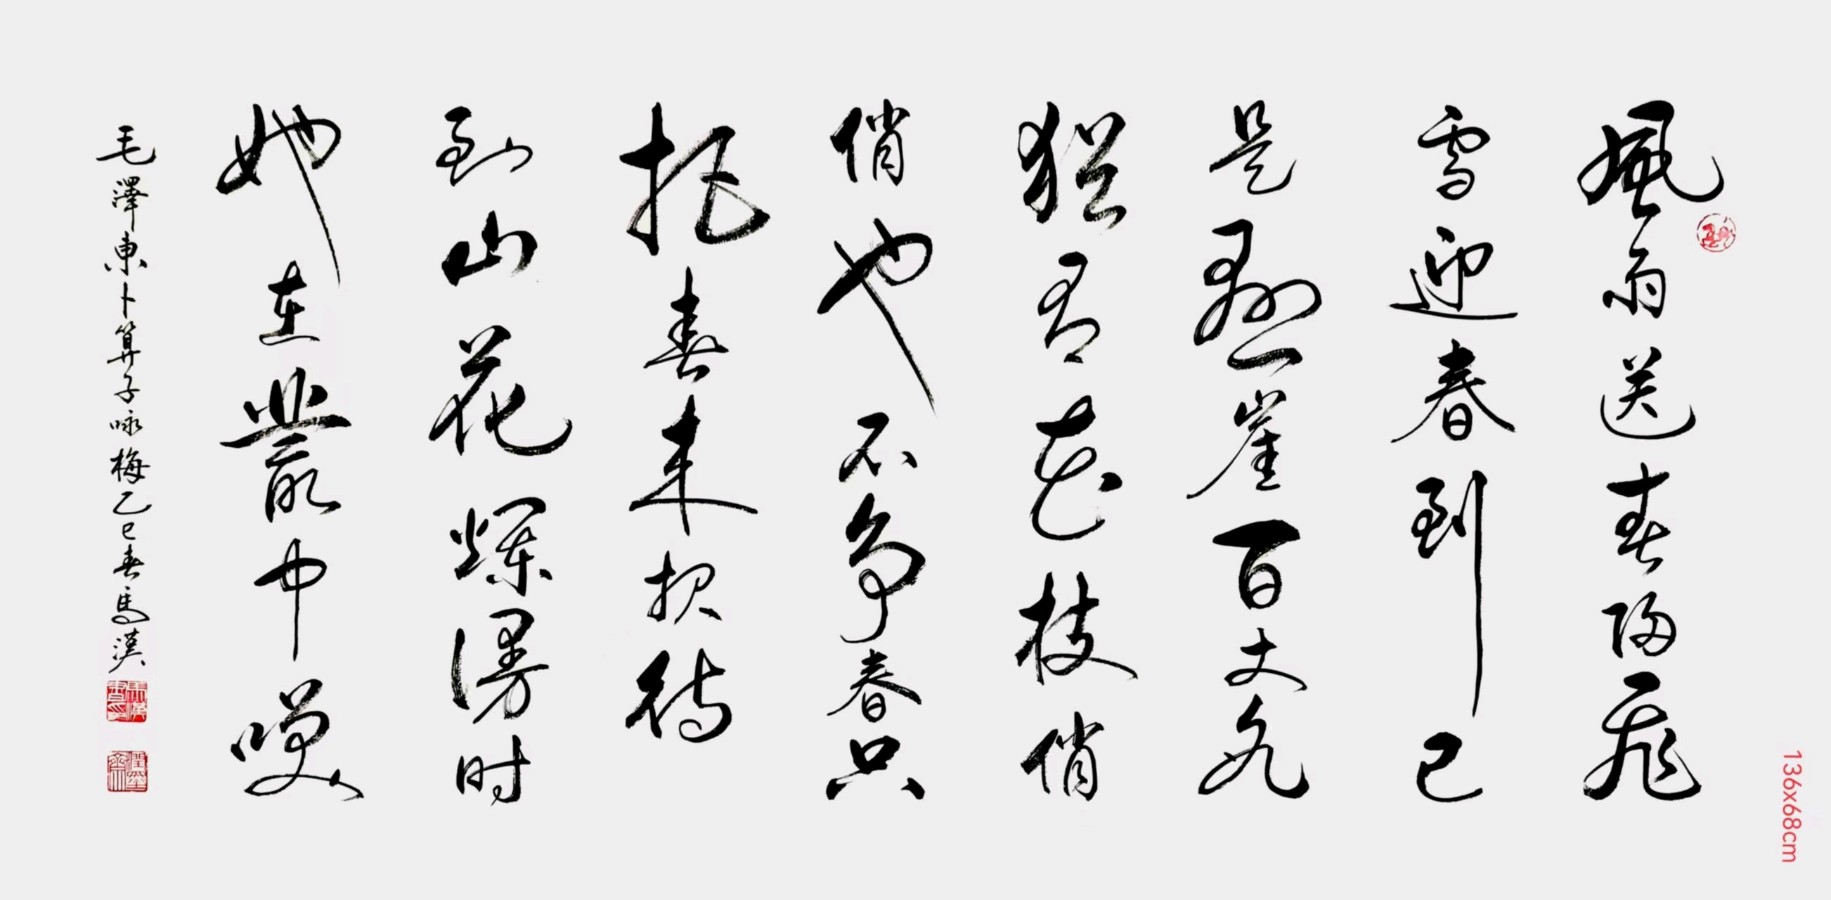 風雨送春归飛
雪迎春到已
是懸崖百丈冰
猶有花枝俏
俏也不争春只
把春来报待
到山花爛漫时
她在叢中咲
毛澤東卜算子咏梅乙巳春馬漢
136x68cm